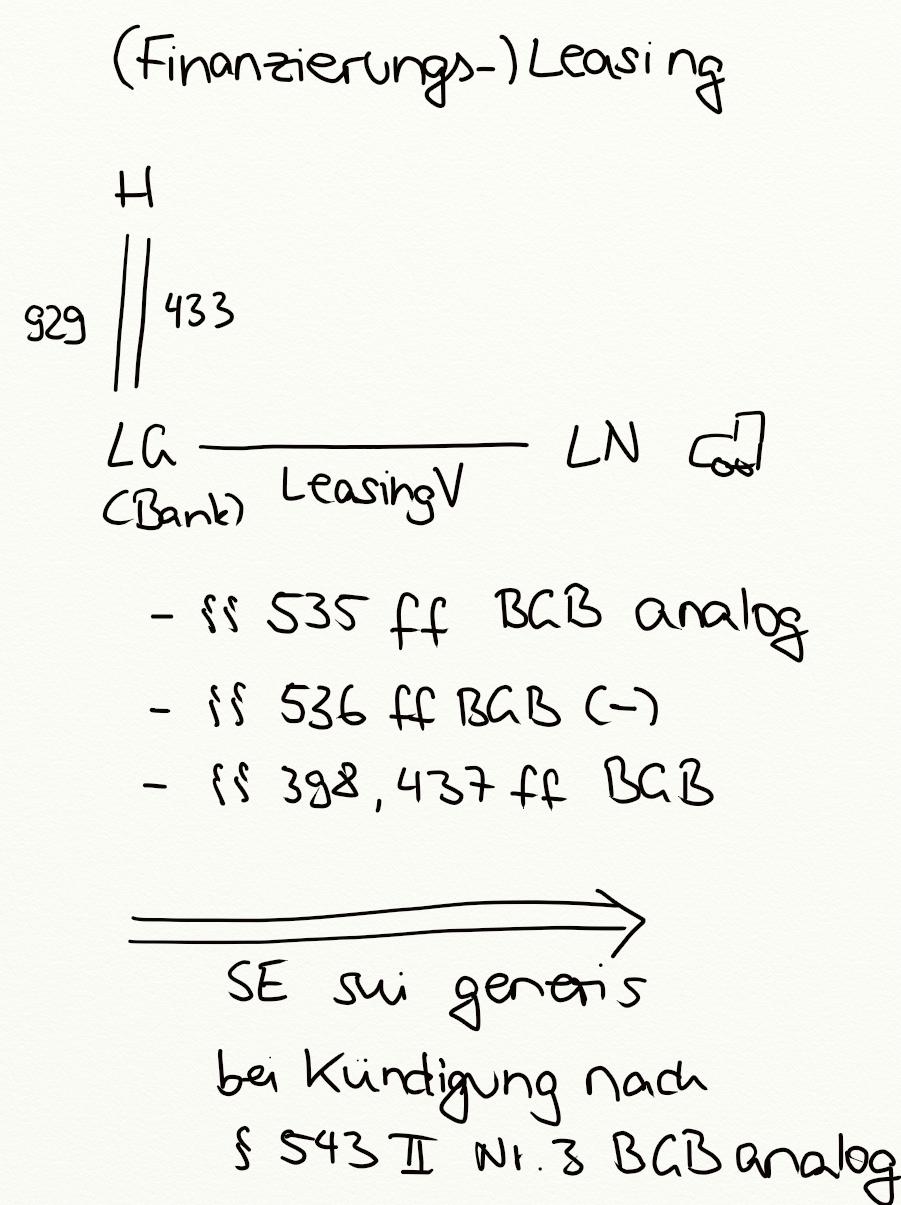 (Finanzierungs-) Leasing
H
929 433
LG LN
(Bank) LeasingV
- §§ 535 ff BGB analog
- §§ 536 ff BGB (-)
- §§ 398, 437 ff BGB
SE sui generis
bei Kündigung nach
§ 543 II Nr. 3 BGB analog